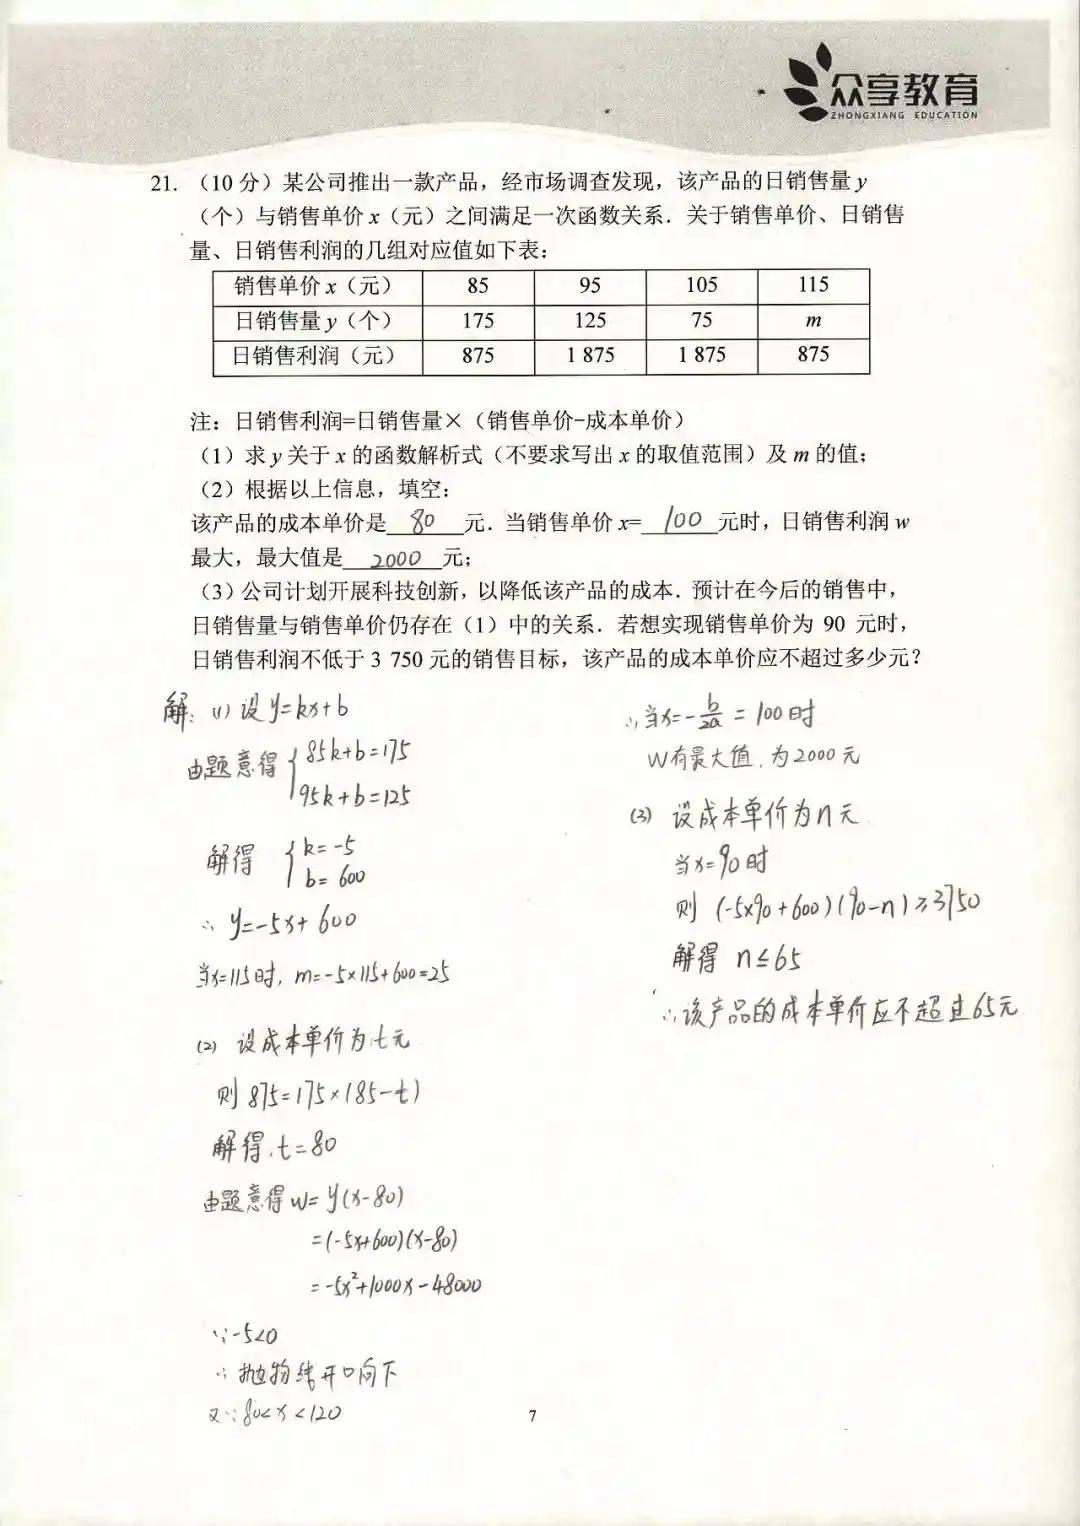 众享教育
ZHONGXIANG EDUCATION
21. （10 分）某公司推出一款产品，经市场调查发现，该产品的日销售量 y
（个）与销售单价 x（元）之间满足一次函数关系．关于销售单价、日销售
量、日销售利润的几组对应值如下表：
销售单价 x（元） 85 95 105 115
日销售量 y（个） 175 125 75 m
日销售利润（元） 875 1 875 1 875 875
注：日销售利润=日销售量×（销售单价-成本单价）
（1）求 y 关于 x 的函数解析式（不要求写出 x 的取值范围）及 m 的值；
（2）根据以上信息，填空：
该产品的成本单价是 80 元．当销售单价 x= 100 元时，日销售利润 w
最大，最大值是 2000 元；
（3）公司计划开展科技创新，以降低该产品的成本．预计在今后的销售中，
日销售量与销售单价仍存在（1）中的关系．若想实现销售单价为 90 元时，
日销售利润不低于 3 750 元的销售目标，该产品的成本单价应不超过多少元？
解：(1) 设 y=kx+b
由题意得 { 85k+b=175
95k+b=125
解得 { k=-5
b=600
∴ y=-5x+600
当x=115时, m=-5×115+600=25
(2) 设成本单价为t元
则 875=175×(85-t)
解得,t=80
由题意得 w=y(x-80)
=(-5x+600)(x-80)
=-5x²+1000x-48000
∵-5<0
∴抛物线开口向下
又∵80<x<120
∴当x=-b/2a=100时
W有最大值,为2000元
(3) 设成本单价为n元
当x=90时
则 (-5×90+600)(90-n)≥3750
解得 n≤65
∴该产品的成本单价应不超过65元
7